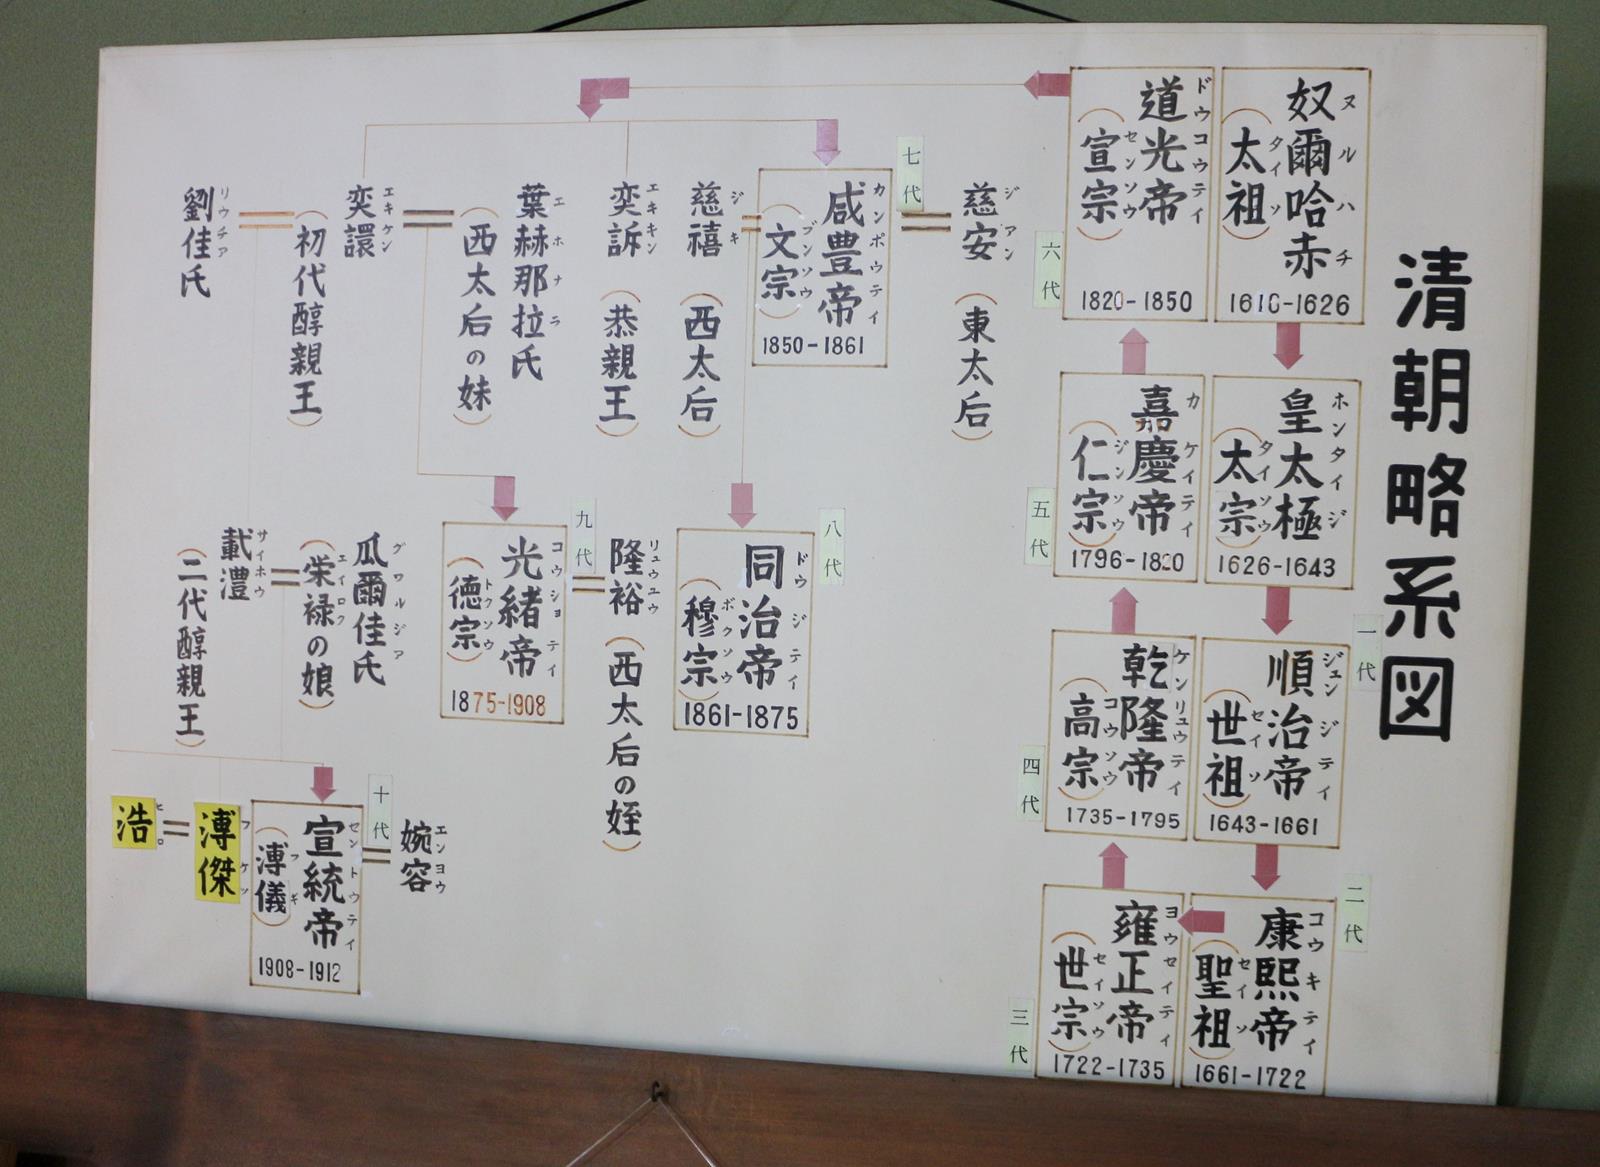 清朝略系図
奴爾哈赤
ヌルハチ
(太祖)
タイソ
1616-1626
皇太極
ホンタイジ
(太宗)
タイソウ
1626-1643
一代
順治帝
ジュンジテイ
(世祖)
セイソ
1643-1661
二代
康熙帝
コウキテイ
(聖祖)
セイソ
1661-1722
三代
雍正帝
ヨウセイテイ
(世宗)
セイソウ
1722-1735
四代
乾隆帝
ケンリュウテイ
(高宗)
コウソウ
1735-1795
五代
嘉慶帝
カケイテイ
(仁宗)
ジンソウ
1796-1820
六代
道光帝
ドウコウテイ
(宣宗)
センソウ
1820-1850
慈安(東太后)
ジアン
七代
咸豊帝
カンポウテイ
(文宗)
ブンソウ
1850-1861
慈禧(西太后)
ジキ
奕訴(恭親王)
エキキン
葉赫那拉氏
エホナラ
(西太后の妹)
奕譞
エキケン
(初代醇親王)
劉佳氏
リウチア
八代
同治帝
ドウジテイ
(穆宗)
ボクソウ
1861-1875
隆裕(西太后の姪)
リュウユウ
九代
光緒帝
コウショテイ
(徳宗)
トクソウ
1875-1908
瓜爾佳氏
グワルジア
(栄禄の娘)
エイロク
載灃
サイホウ
(二代醇親王)
婉容
エンヨウ
十代
宣統帝
セントウテイ
(溥儀)
フギ
1908-1912
溥傑
フケツ
浩
ヒロ